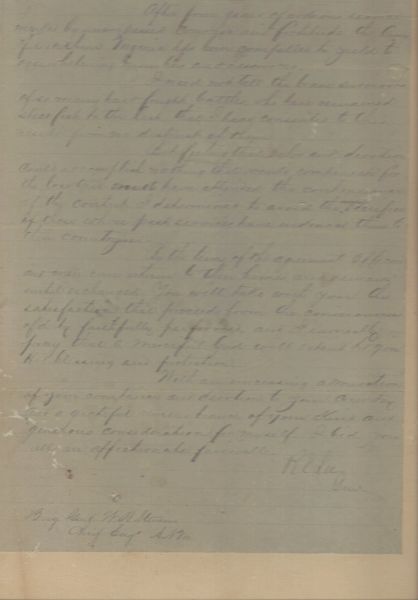 After four years of arduous service
marked by unsurpassed courage and fortitude the Army
of Northern Virginia has been compelled to yield to
overwhelming numbers and resources.
I need not tell the brave survivors
of so many hard fought battles who have remained
steadfast to the last that I have consented to this
result from no distrust of them.
But feeling that valor and devotion
could accomplish nothing that would compensate for
the loss that must have attended the continuance
of the contest I determined to avoid the
of those whose past services have endeared them to
their countrymen.
By the terms of the agreement Officers
and men can return to their homes and remain
until exchanged. You will take with you the
satisfaction that proceeds from the consciousness
of duty faithfully performed and I earnestly
pray that a Merciful God will extend to you
His blessing and protection.
With an unceasing admiration
of your constancy and devotion to your Country
and a grateful remembrance of your kind and
generous consideration for myself I bid you
all an affectionate farewell.
R E Lee
Genl
Brig Genl W H Stevens
Chief Engr A.N.Va